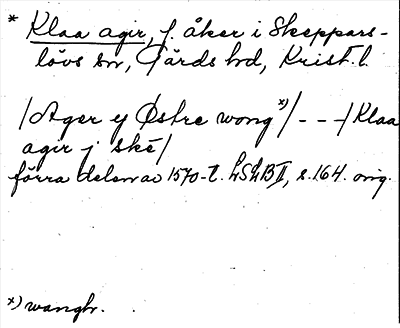 * Klaa agir, f. åker i Skeppars-
lövs sn, Gärds hd, Krist. l.
/Ager ej Østre wong *)/ - - -/Klaa
agir j ské/
förra delen av 1570-t. LSLB II, s. 164. orig.
*) wanghr.